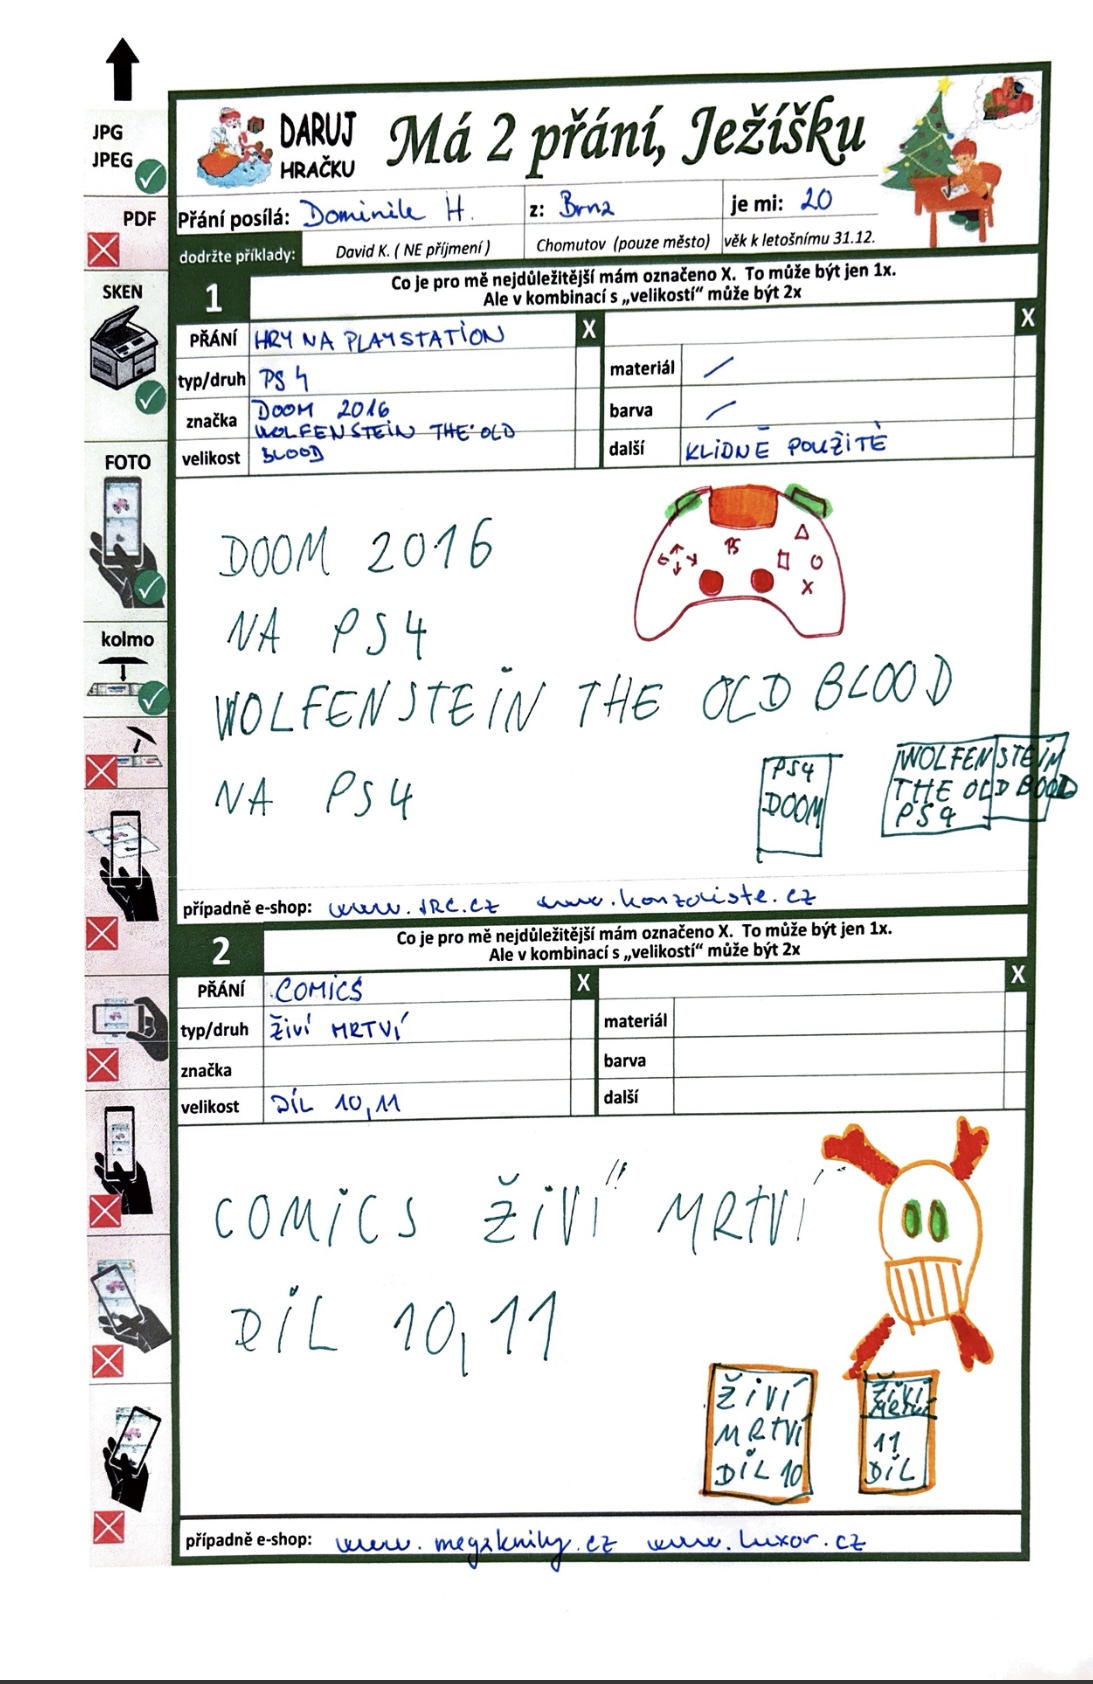 JPG
JPEG
PDF
SKEN
FOTO
kolmo
DARUJ
HRAČKU
Má 2 přání, Ježíšku
Přání posílá: Dominik H. z: Brna je mi: 20
dodržte příklady: David K. ( NE příjmení ) Chomutov (pouze město) věk k letošnímu 31.12.
1
Co je pro mě nejdůležitější mám označeno X. To může být jen 1x.
Ale v kombinací s „velikostí“ může být 2x
PŘÁNÍ HRY NA PLAYSTATION X X
typ/druh PS 4 materiál /
značka DOOM 2016 barva /
WOLFENSTEIN THE OLD
velikost BLOOD další KLIDNĚ POUŽITÉ
DOOM 2016
NA PS4
WOLFENSTEIN THE OLD BLOOD
NA PS4
PS
X
PS4
DOOM
WOLFENSTEIN
THE OLD BOOD
PS4
případně e-shop: www.JRC.cz www.konzoliste.cz
2
Co je pro mě nejdůležitější mám označeno X. To může být jen 1x.
Ale v kombinací s „velikostí“ může být 2x
PŘÁNÍ COMICS X X
typ/druh ŽIVÍ MRTVÍ materiál
značka barva
velikost DÍL 10,11 další
COMICS ŽIVÍ MRTVÍ
DÍL 10,11
ŽIVÍ
MRTVÍ
DÍL 10
ŽIVÍ
MRTVÍ
11
DÍL
případně e-shop: www.megaknihy.cz www.luxor.cz